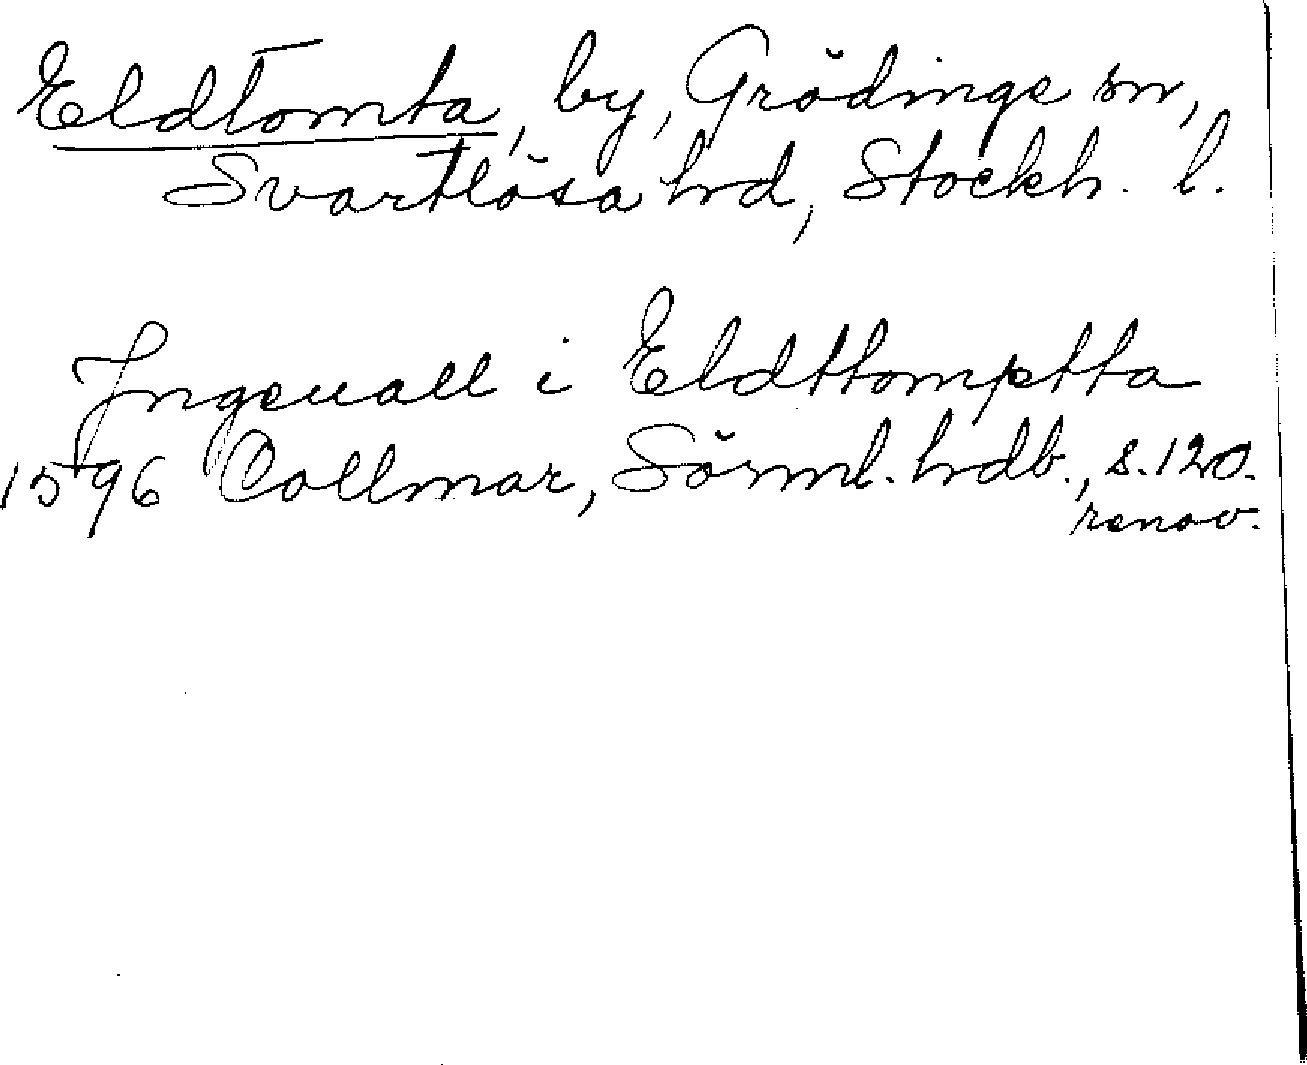 Eldtomta, by, Grödinge sn,
Svartlösa hd, Stockh. l.
Ingeuall i Eldttomptta
1596 Collmar, Sörml. hdb., s. 120.
renov.